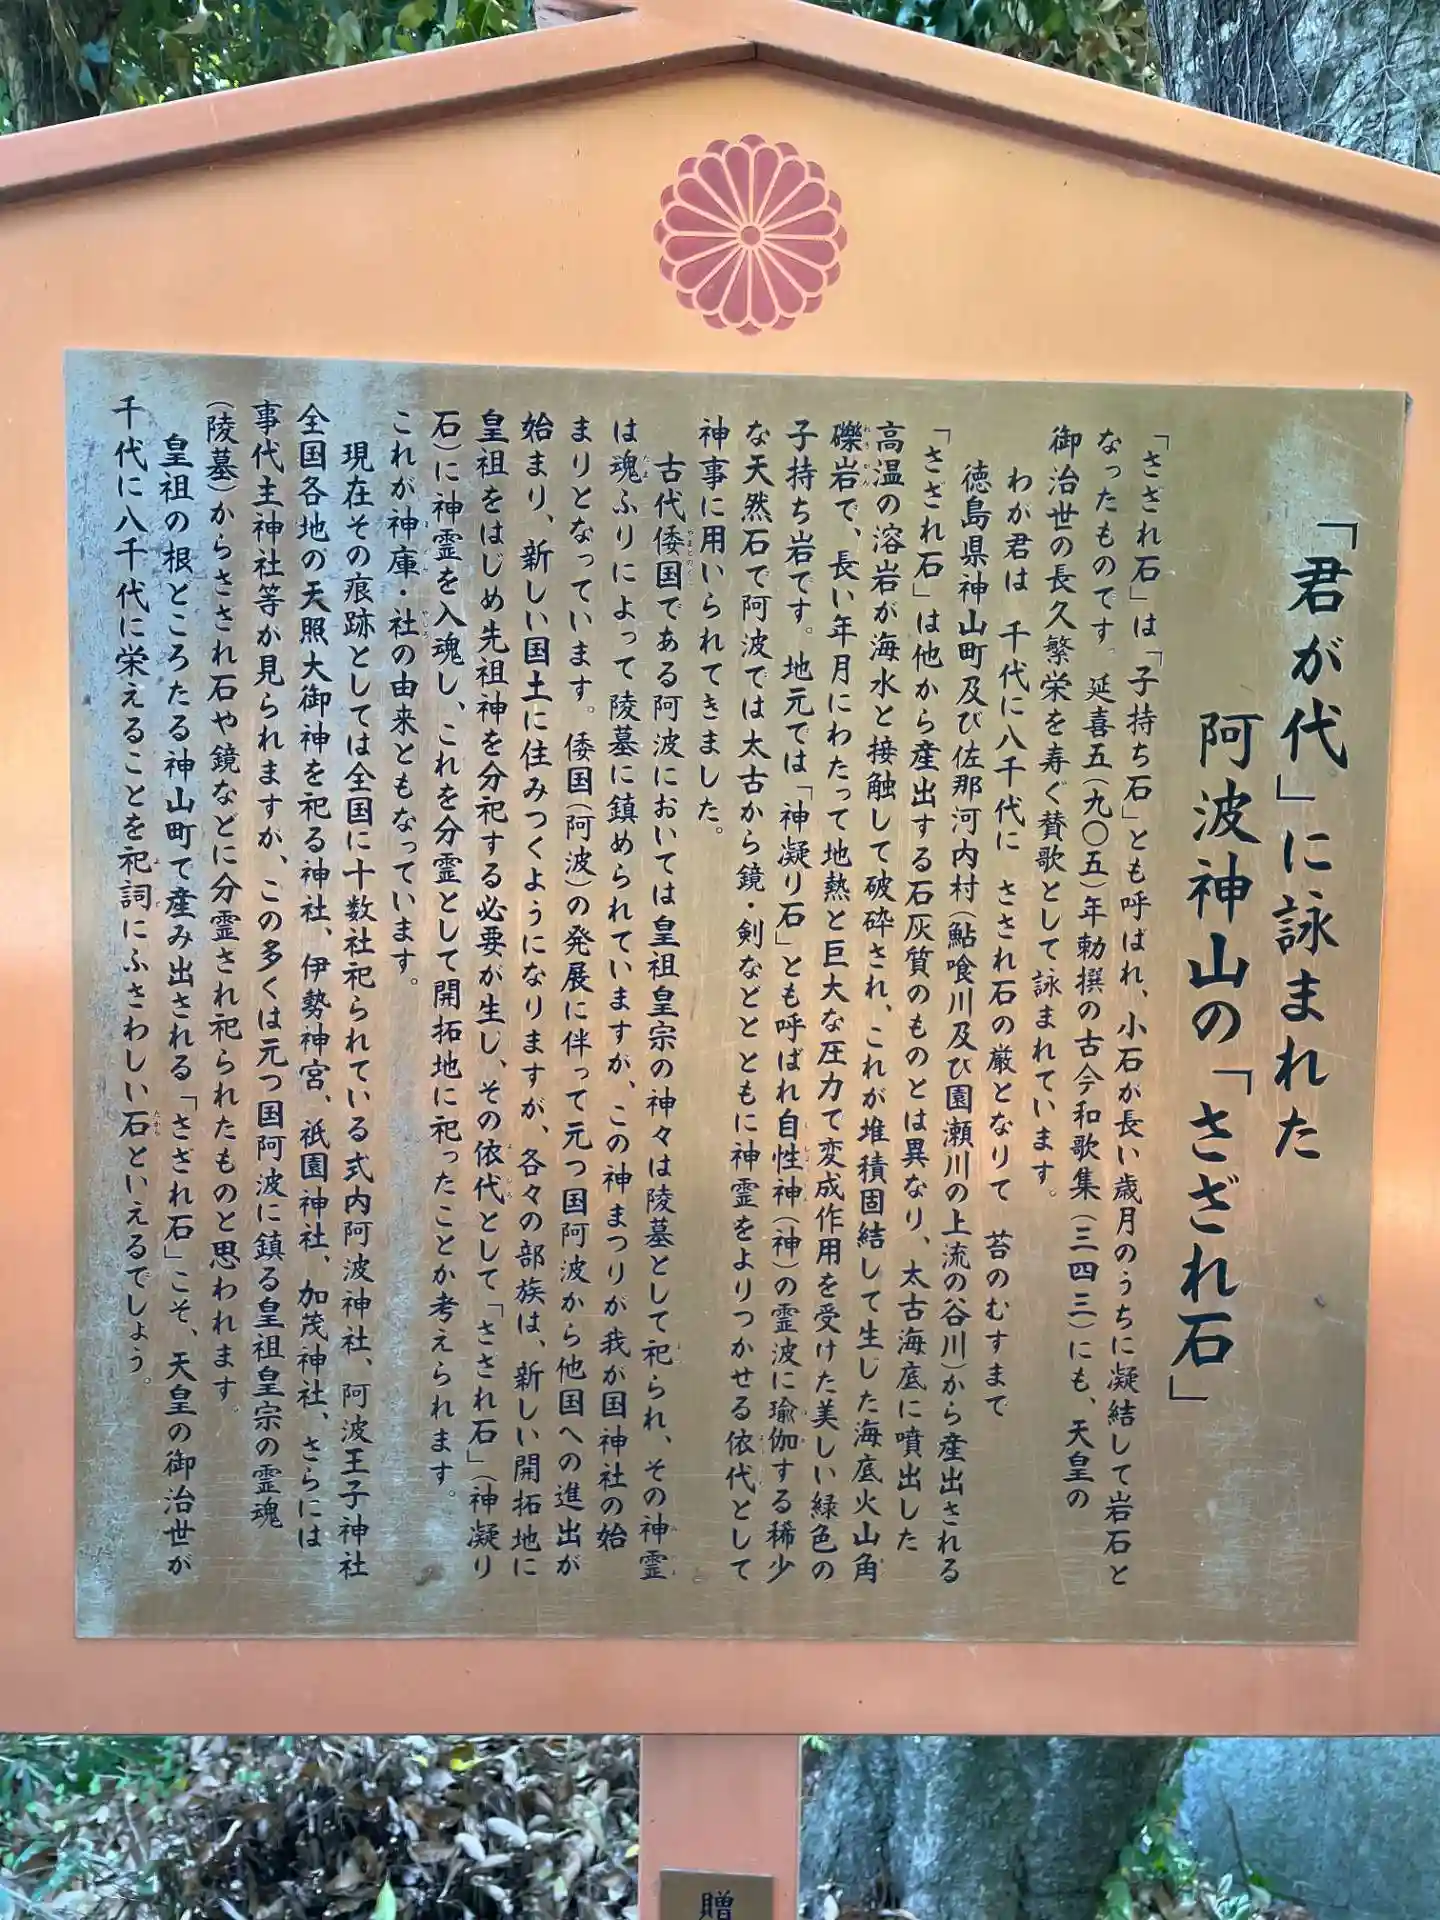 「君が代」に詠まれた
阿波神山の「さざれ石」
「さざれ石」は「子持ち石」とも呼ばれ、小石が長い歳月のうちに凝結して岩石と
なったものです。延喜五(九〇五)年勅撰の古今和歌集(三四三)にも、天皇の
御治世の長久繁栄を寿ぐ賛歌として詠まれています。
わが君は 千代に八千代に さざれ石の厳となりて 苔のむすまで
徳島県神山町及び佐那河内村(鮎喰川及び園瀬川の上流の谷川)から産出される
「さざれ石」は他から産出する石灰質のものとは異なり、太古海底に噴出した
高温の溶岩が海水と接触して破砕され、これが堆積固結して生じた海底火山角
礫岩で、長い年月にわたって地熱と巨大な圧力で変成作用を受けた美しい緑色の
子持ち岩です。地元では「神凝り石」とも呼ばれ自性神(神)の霊波に瑜伽する稀少
な天然石で阿波では太古から鏡・剣などとともに神霊をよりつかせる依代として
神事に用いられてきました。
古代倭国である阿波においては皇祖皇宗の神々は陵墓として祀られ、その神霊
は魂ふりによって陵墓に鎮められていますが、この神まつりが我が国神社の始
まりとなっています。倭国(阿波)の発展に伴って元つ国阿波から他国への進出が
始まり、新しい国土に住みつくようになりますが、各々の部族は、新しい開拓地に
皇祖をはじめ先祖神を分祀する必要が生じ、その依代として「さざれ石」(神凝り
石)に神霊を入魂し、これを分霊として開拓地に祀ったことが考えられます。
これが神庫・社の由来ともなっています。
現在その痕跡としては全国に十数社祀られている式内阿波神社、阿波王子神社
全国各地の天照大御神を祀る神社、伊勢神宮、祇園神社、加茂神社、さらには
事代主神社等が見られますが、この多くは元つ国阿波に鎮る皇祖皇宗の霊魂
(陵墓)からさざれ石や鏡などに分霊され祀られたものと思われます。
皇祖の根どころたる神山町で産み出される「さざれ石」こそ、天皇の御治世が
千代に八千代に栄えることを祀詞にふさわしい石といえるでしょう。
贈